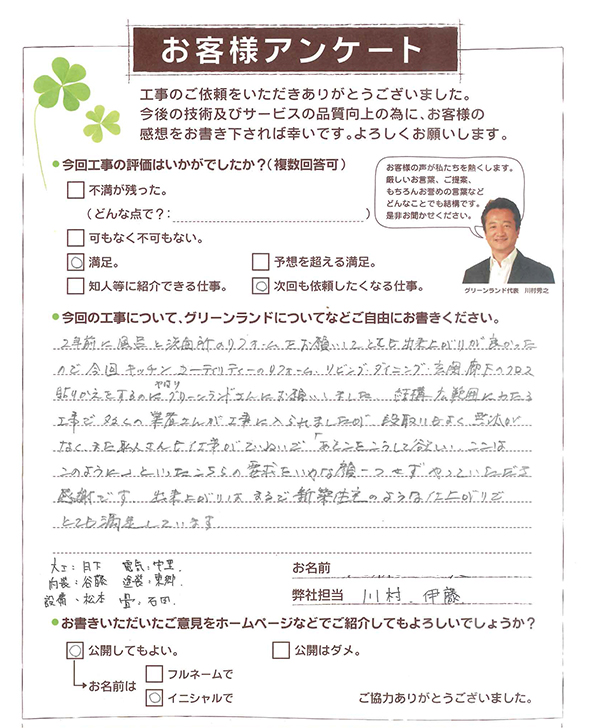 お客様アンケート
工事のご依頼をいただきありがとうございました。
今後の技術及びサービスの品質向上の為に、お客様の
感想をお書き下されば幸いです。よろしくお願いします。
●今回工事の評価はいかがでしたか?(複数回答可)
お客様の声が私たちを熱くします。
厳しいお言葉、ご提案、
もちろんお誉めの言葉など
どんなことでも結構です。
是非お聞かせください。
グリーンランド代表 川村秀之
□不満が残った。
(どんな点で?: )
□可もなく不可もない。
☑満足。 □予想を超える満足。
□知人等に紹介できる仕事。 ☑次回も依頼したくなる仕事。
●今回の工事について、グリーンランドについてなどご自由にお書きください。
2年前に風呂と洗面所のリフォームをお願いしてとても出来上がりが良かった
ので今回キッチンユーティリティーのリフォーム、リビング・ダイニング・玄関廊下のクロス
貼りかえをするのにやはりグリーンランドさんにお願いしました。結構広範囲にわたる
工事で多くの業者さんが工事に入られましたが、段取りもよく無汰が
なくまた職人さんも仕事がていねいで「あそこをこうして欲しい、ここは
このように」といったこちらの要求をいやな顔一つせずやっていただき
感謝です。出来上がりはまるで新築住宅のような仕上がりで
とても満足しています
大工:月下 電気:中里
内装:谷藤 塗装:東郷
設備:松本 畳:石田
お名前
弊社担当 川村、伊藤
●お書きいただいたご意見をホームページなどでご紹介してもよろしいでしょうか?
☑公開してもよい。 □公開はダメ。
お名前は □フルネームで
☑イニシャルで
ご協力ありがとうございました。